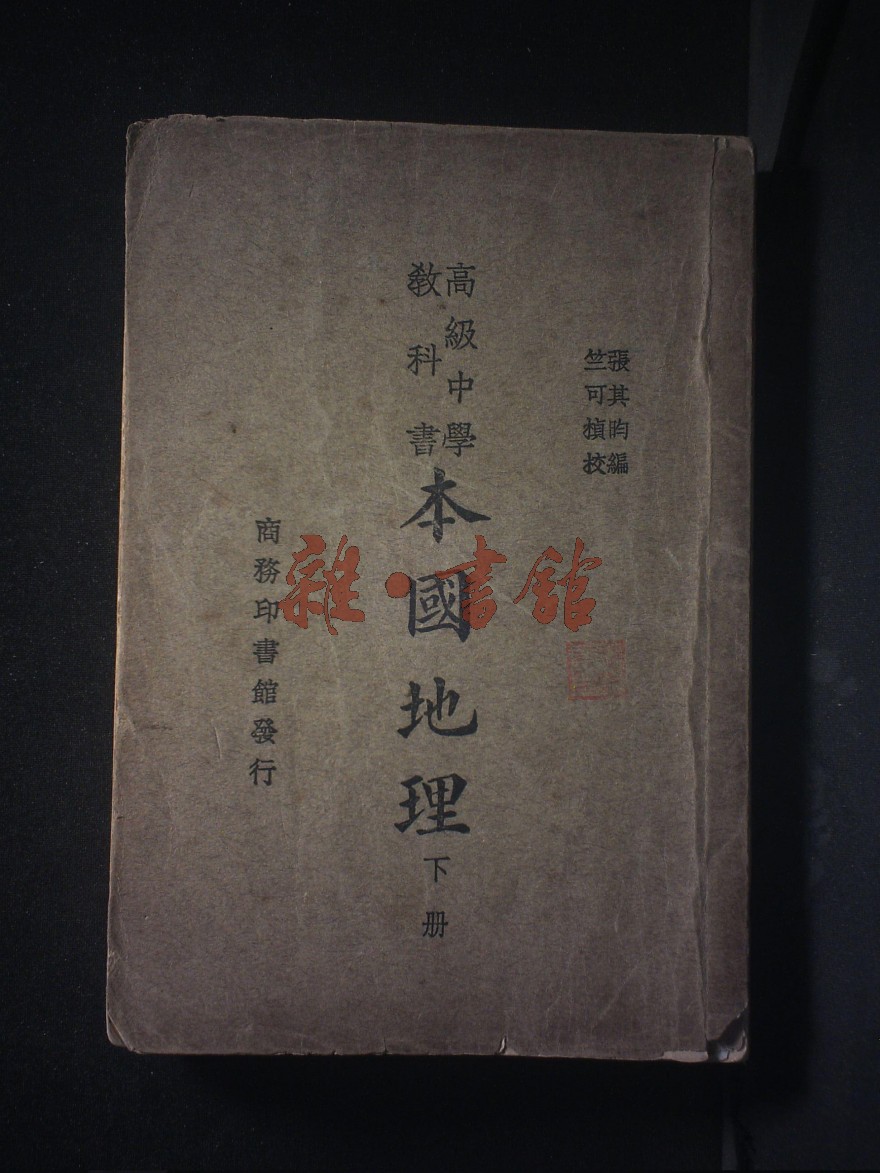 張其昀編
竺可楨校
高級中學
教科書
本國地理
下册
商務印書館發行
雜·書館